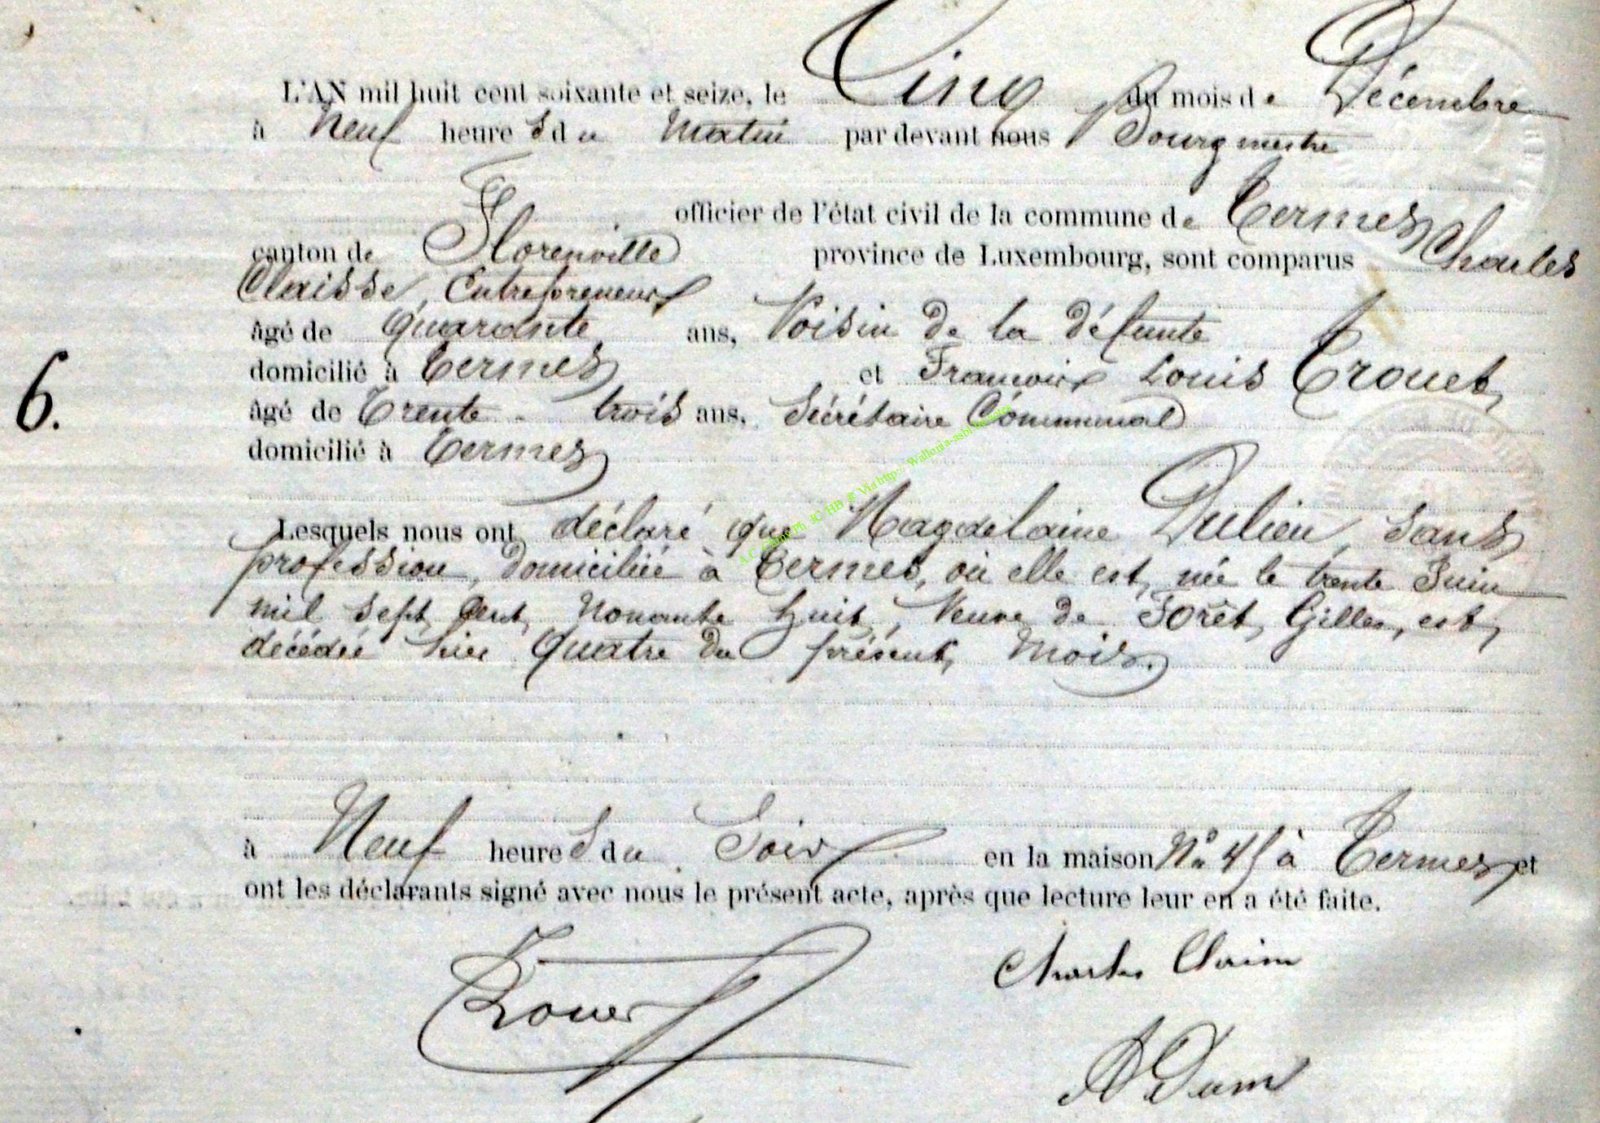 L'AN mil huit cent soixante et seize, le Cinq du mois de Décembre
à Neuf heures du Matin par devant nous Bourgmestre
officier de l'état civil de la commune de Termes
canton de Florenville province de Luxembourg, sont comparus Charles
Claisse, Entrepreneur
âgé de quarante ans, Voisin de la défunte
domicilié à Termes et François Louis Trouet,
6.
âgé de Trente-trois ans, Sécrétaire Communal
domicilié à Termes
Lesquels nous ont déclaré que Magdelaine Dulieu, sans
profession, domiciliée à Termes, où elle est née le trente Juin
mil sept cent nonante huit, Veuve de Forêt Gilles, est
décédée hier quatre du présent Mois.
à Neuf heures du Soir en la maison N° 45 à Termes et
ont les déclarants signé avec nous le présent acte, après que lecture leur en a été faite.
Trouet
Charles Claisse